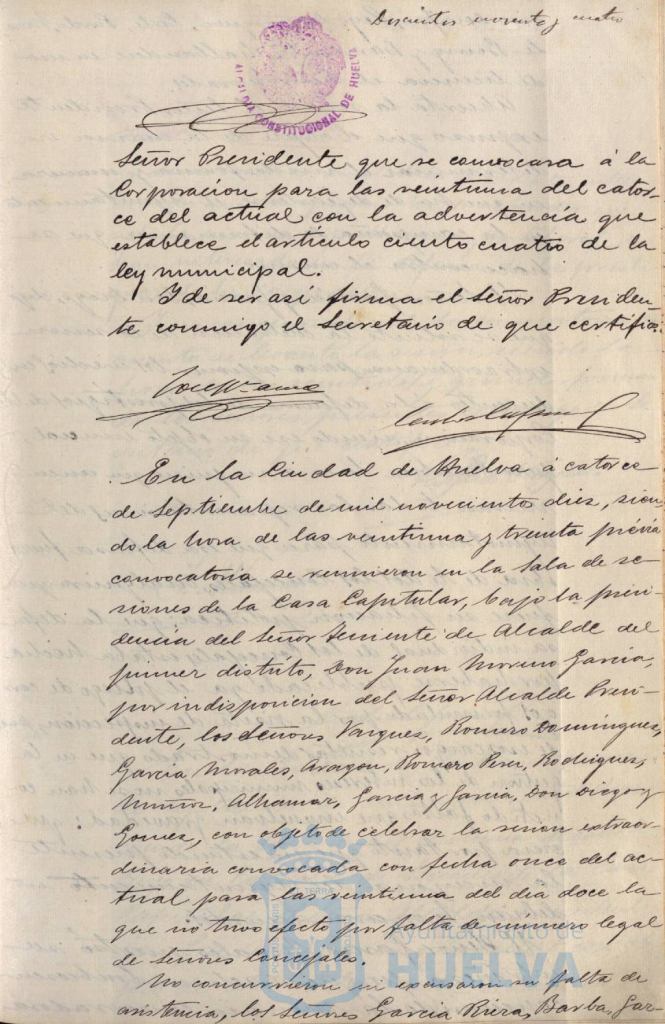 Doscientos noventa y cuatro
ALCALDIA CONSTITUCIONAL DE HUELVA
Señor Presidente que se convocara á la
Corporación para las veintiuna del cator-
ce del actual con la advertencia que
establece el artículo ciento cuatro de la
ley municipal.
Y de ser así firma el Señor Presiden-
te conmigo el Secretario de que certifico.
En la Ciudad de Huelva á catorce
de Septiembre de mil novecientos diez, sien-
do la hora de las veintiuna y treinta prévia
convocatoria se reunieron en la Sala de se-
siones de la Casa Capitular, bajo la presi-
dencia del Señor Teniente de Alcalde del
primer distrito, Don Juan Moreno García,
por indisposicion del Señor Alcalde Presi-
dente, los Señores Vazques, Romero Domíngues,
García Morales, Aragon, Romero Perez, Rodrigues,
Muñoz, Alhamar, García y García, Don Diego y
Gomez, con objeto de celebrar la sesion extraor-
dinaria convocada con fecha once del ac-
tual para las veintiuna del dia doce la
que no tuvo efecto por falta de número legal
de Señores Concejales.
No concurrieron ni excusaron su falta de
asistencia, los Señores García Riera, Barba, Gar-
Ayuntamiento de
HUELVA